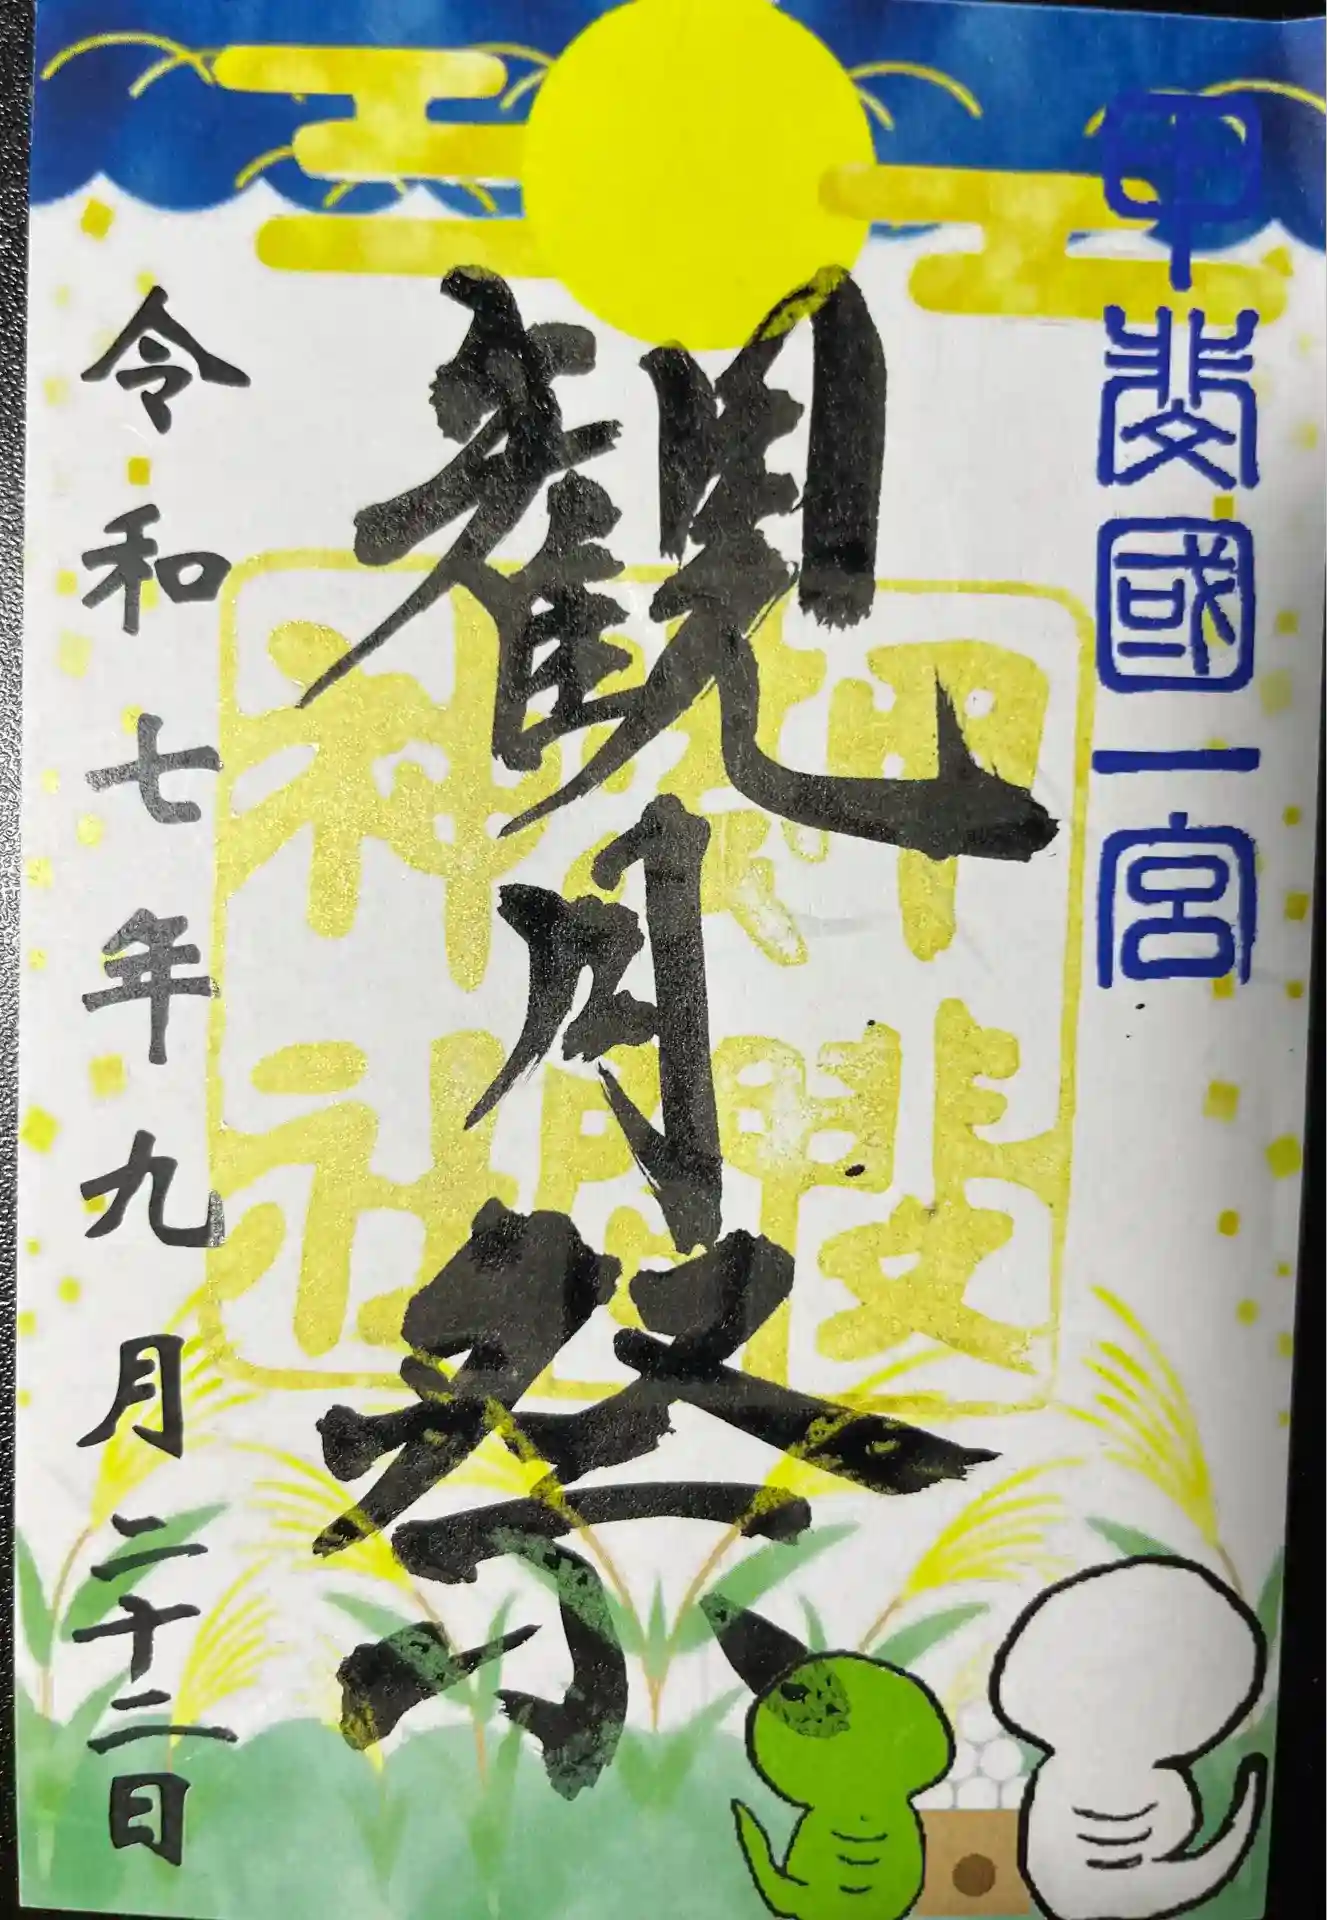 甲斐國一宮
観月祭
甲斐
間
神社
令和七年九月二十二日